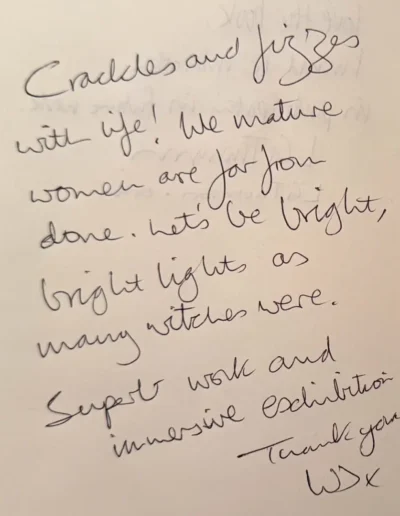 Crackles and fizzes
with life! We mature
women are far from
done. Let's be bright,
bright lights as
many witches were.
Superb work and
immersive exhibition
Thank you
WDx